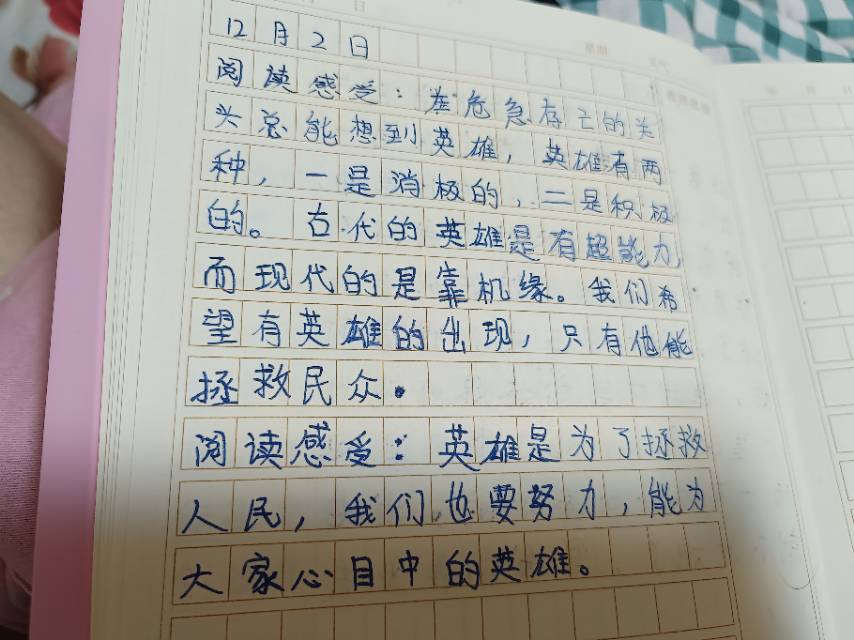 12月2日
阅读感受：在危急存亡的关
头总能想到英雄，英雄有两
种，一是消极的，二是积极
的。古代的英雄是有超能力，
而现代的是靠机缘。我们希
望有英雄的出现，只有他能
拯救民众。
阅读感受：英雄是为了拯救
人民，我们也要努力，能为
大家心目中的英雄。